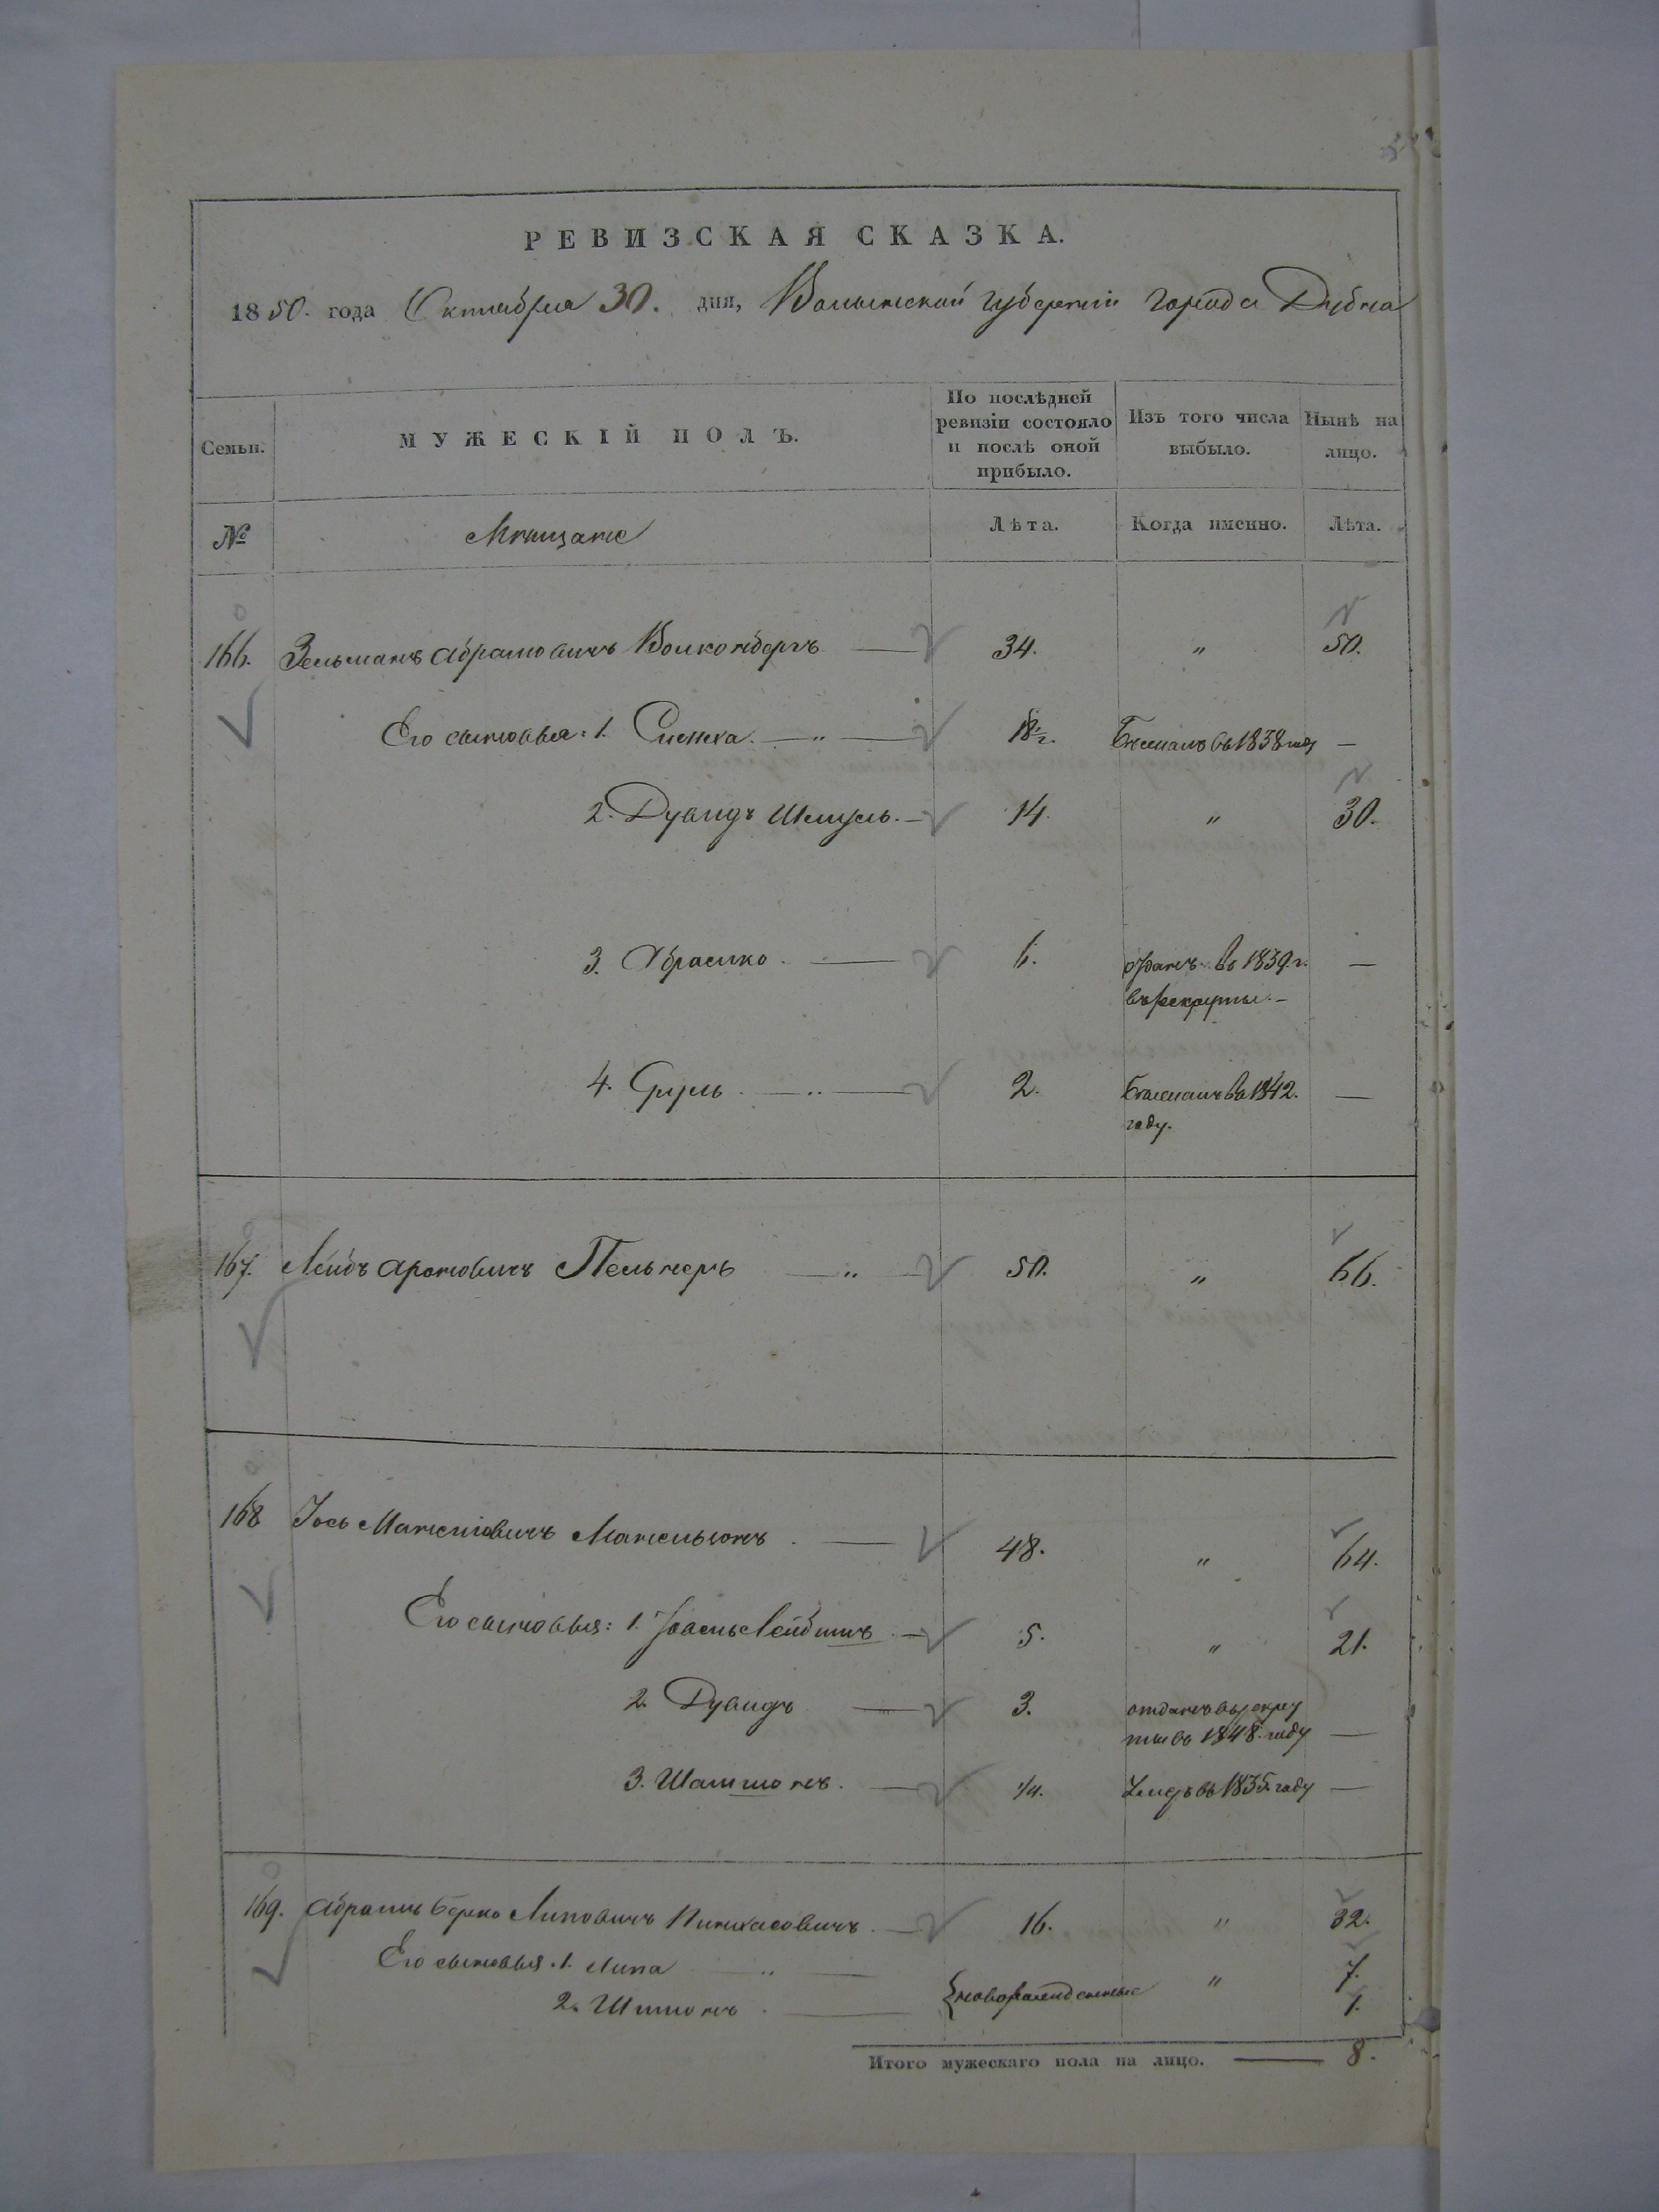 РЕВИЗСКАЯ СКАЗКА.
1850. года Октября 30. дня, Волынской губернiи города Дубна
Семьи.
МУЖЕСКІЙ ПОЛЪ.
По послѣдней ревизіи состояло и послѣ оной прибыло.
Изъ того числа выбыло.
Нынѣ на лицо.
№
Мѣщане
Лѣта.
Когда именно.
Лѣта.
166. Зельманъ Абрамовичъ 34. " 50.
Его сыновья: 1. 18½. въ 1838 году —
2. Дувидъ Шмуль. — 14. " 30.
3. Абрамко. — 6. отданъ въ 1839. г. —
въ рекруты. —
4. Сруль. — " — 2. Бѣжалъ въ 1842. —
году.
167. Лейбъ Ароновичъ Пельнеръ — " — 50. " 66.
168 Іось Манелiовичъ Манельзонъ. — 48. " 64.
Его сыновья: 1. Лейбишъ. — 5. " 21.
2. Дувидъ — 3. отданъ въ рекру
ты въ 1848. году —
3. Шампшонъ. — 1/4. въ 1835. году —
169. Абрамъ Берко Липовичъ Пинхасовичъ. — 16. " 32.
Его сыновья. 1. Липа " — 7.
2. Шишонъ. — новорожденные " 1.
Итого мужескаго пола на лицо. — 8.